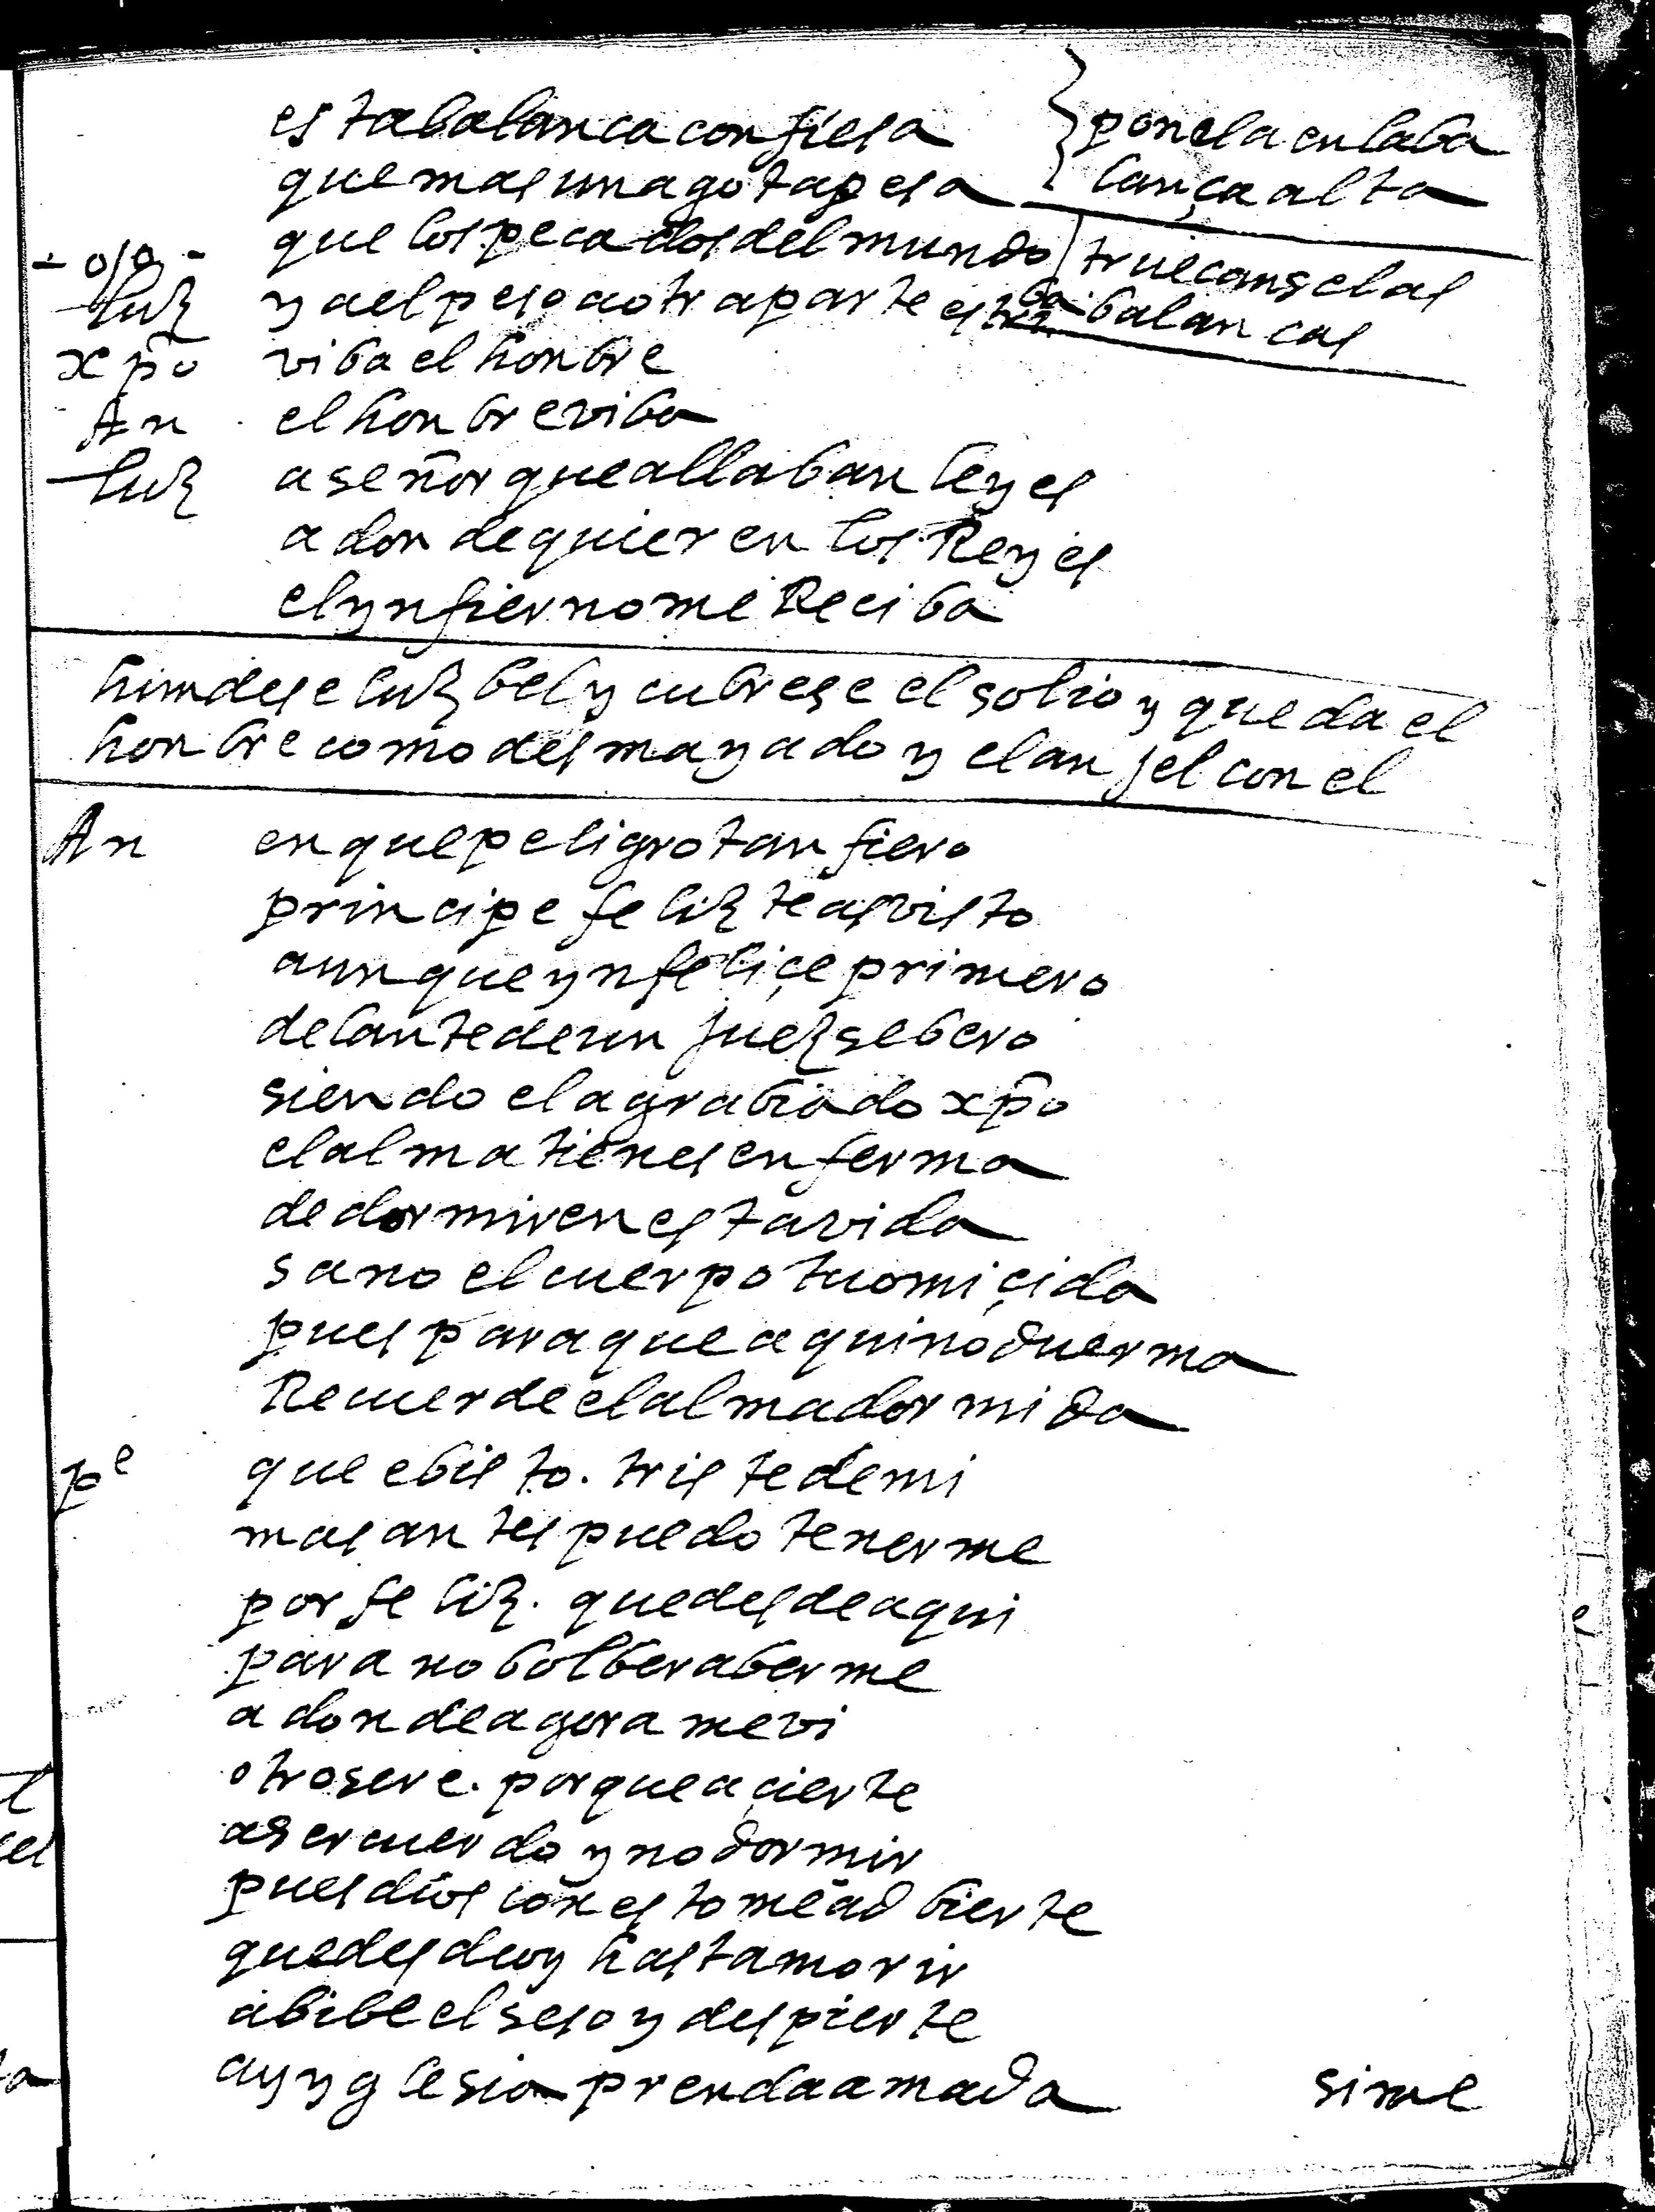 esta balanca confiesa
que mas una gota pesa
ponela en la ba
lança alta
que los pecados del mundo
- ojo -
truecanse las
balancas
luz y a el peso a otra parte estriba
xpo viba el honbre
An el honbre viba
luz a señor que alla ban leyes
a donde quieren los Reyes
el ynfierno me Reciba
hundese luzbel y cubrese el solio y queda el
honbre como desmayado y el anjel con el
An en que peligro tan fiero
principe feliz te as visto
aunque ynfeliçe primero
delante de un juez sebero
siendo el agrabiado xpo
el alma tienes enferma
de dormir en esta vida
sano el cuerpo tu omiçida
pues para que aqui no duerma
Recuerde el alma dormida
pe que e bisto. triste de mi
mas antes puedo tenerme
por feliz. que desde aqui
para no bolber a berme
a donde agora me vi
otro sere. porque açierte
a ser cuerdo y no dormir
pues dios con esto me adbierte
que desde oy hasta morir
abibe el seso y despierte
ay yglesia prenda amada
sime